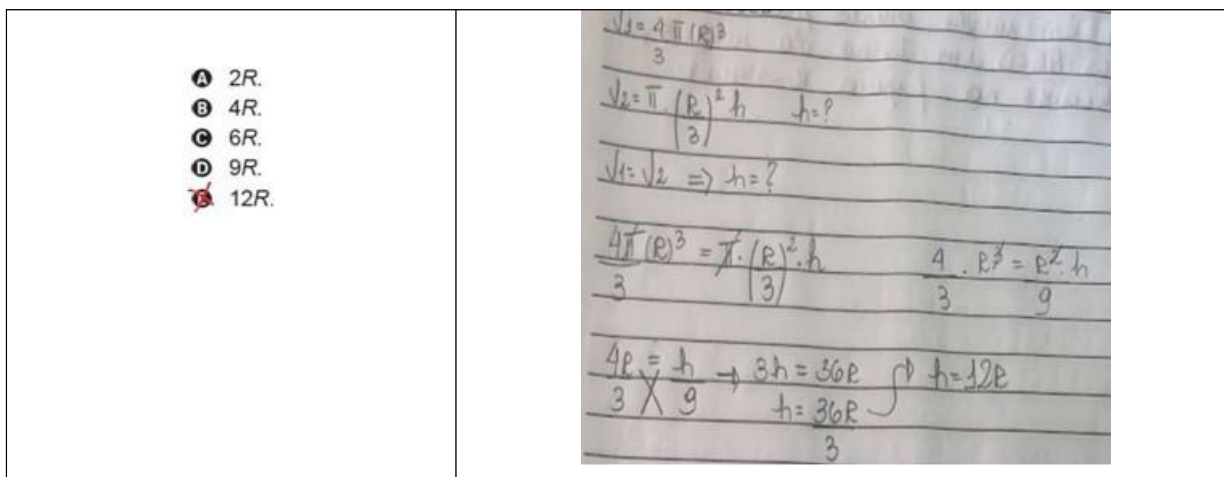 A 2R.
B 4R.
C 6R.
D 9R.
E 12R.
V1 = 4π(R)³/3
V2 = π.(R/3)² h h=?
V1 = V2 => h = ?
4π/3 (R)³ = π.(R/3)².h 4/3 . R³ = R².h/9
4R/3 = h/9 → 3h = 36R → h = 12R
h = 36R/3